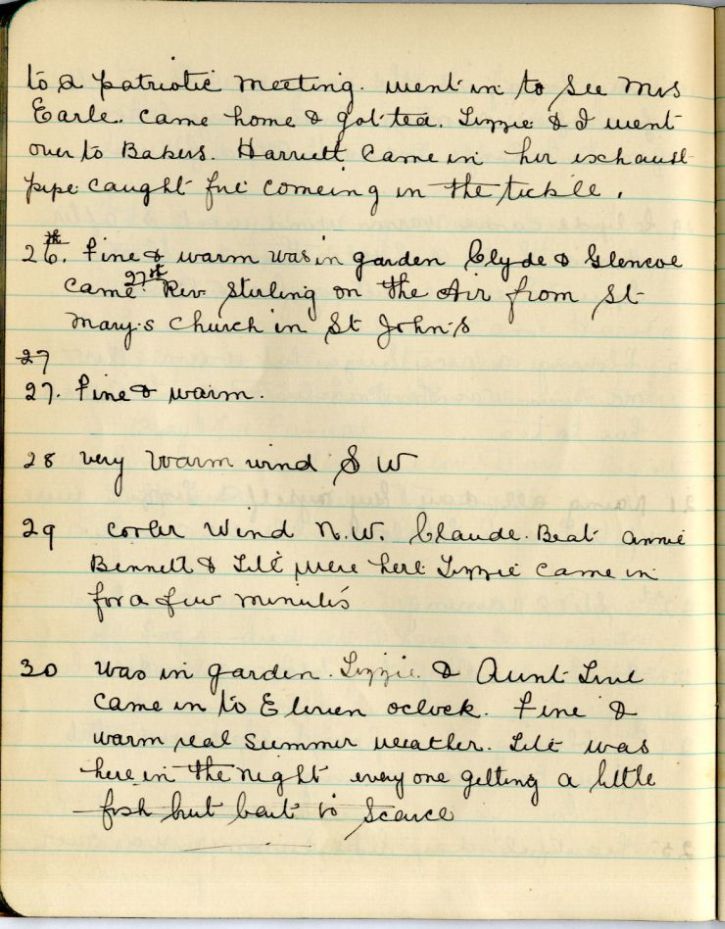 to a patriotic meeting. went in to see Mrs
Earle. came home & got tea. Lizzie & I went
over to Bakers. Harriett came in her exhaust
pipe caught fire comeing in the tickle.
26th. Fine & warm was in garden Clyde & Glencoe
came. 27th Rev Stirling on the Air from St
Mary's Church in St John's
27
27. Fine & warm.
28 very warm wind S W
29 cooler Wind N.W. Claude. Beat Annie
Bennett & Lile were here Lizzie came in
for a few minutes
30 was in garden. Lizzie & Aunt
came in to Eleven oclock. Fine &
warm real summer weather. Lile was
here in the night every one getting a little
fish but bait is scarce